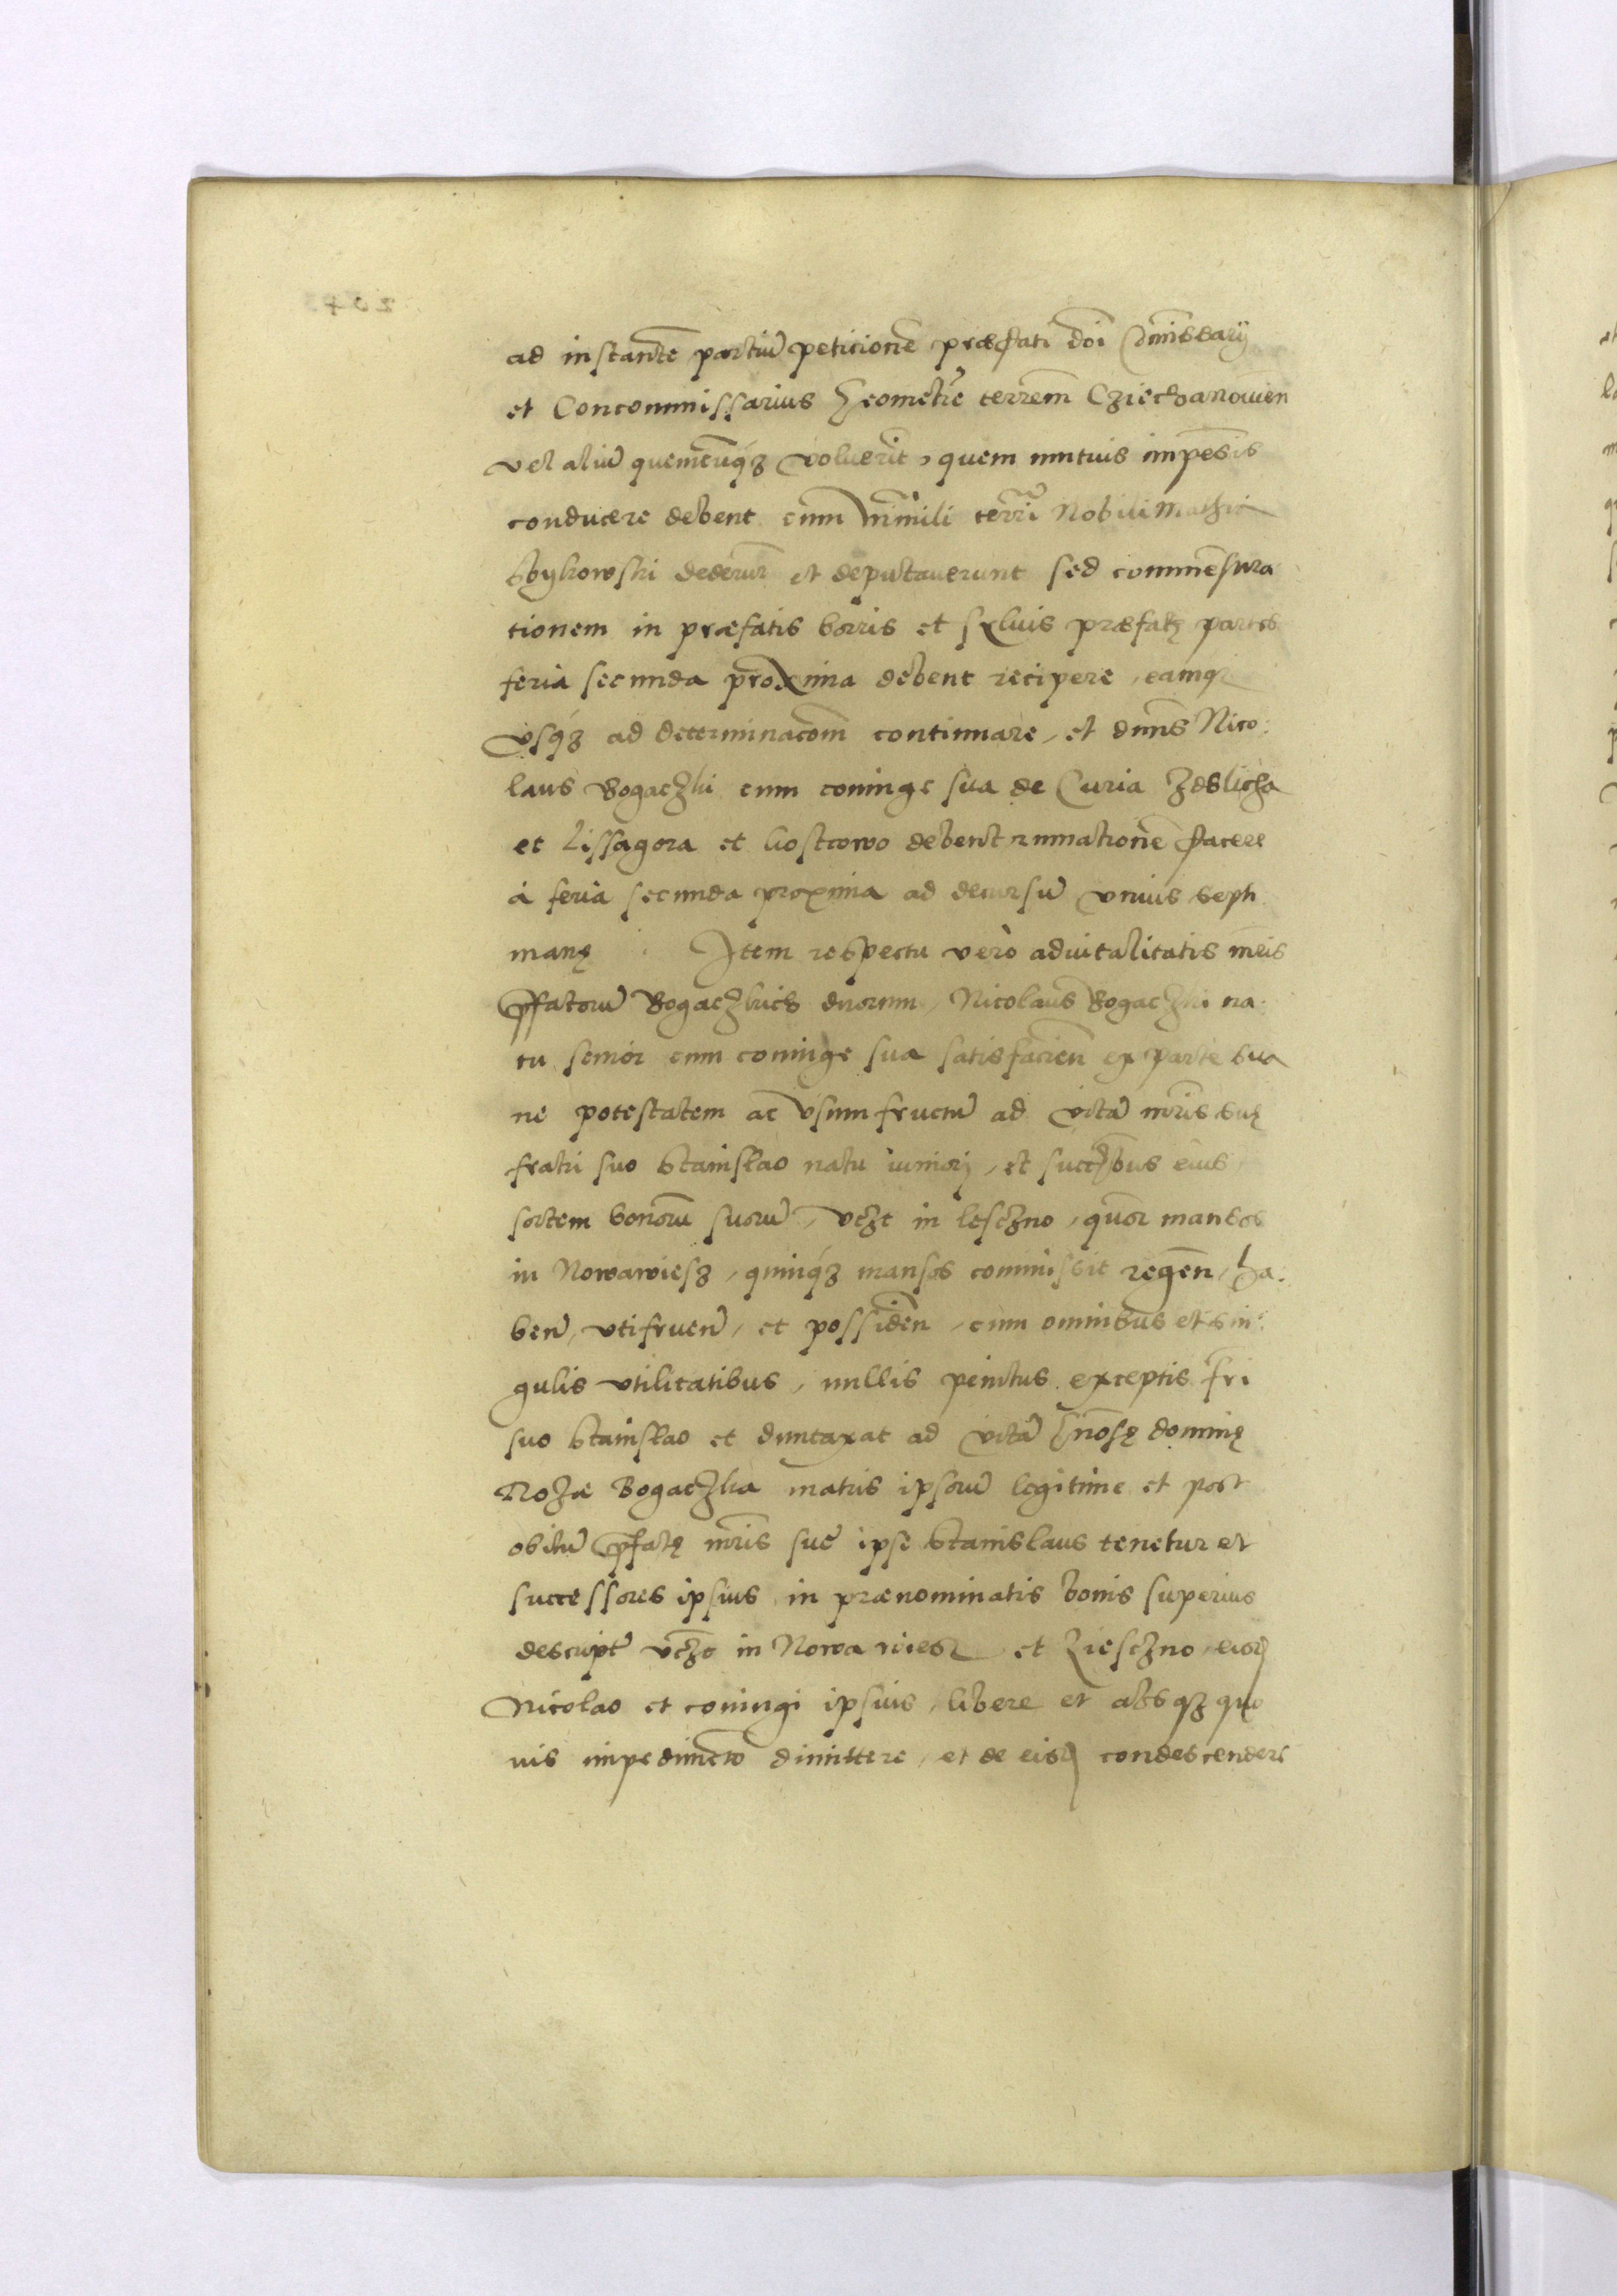 ad instantē partiū peticionē præfati dñi Cōmissarij
et Concommissarius Geometrē terrem̄ Cziechanowien̄
vel aliū quemcūqz voluerit, quem mutuis impēsis
conducere debent cum terrī Nobili Mathia
Bykowski dederunt et deputauerunt sed commēsura
tionem in præfatis borris et syluis præfatę partes
feria secunda proxima debent recipere, eamqz
vsqz ad determinacōm continuare, et dn̄us Nico:
laus Bogaczki cum coniuge sua de Curia Zdslicza
et Lissagora et Kostrowo debent facere
à feria secunda proxima ad decursū vnius septi
manę Item respectu verò aduitalitatis mr̄is
p̄fatorū Bogaczkich duorum, Nicolaus Bogaczki na:
tu senior cum coniuge sua satisfacien̄ ex parte sua
ne potestatem ac vsumfructū ad vitā mr̄is suę
fratri suo Stanislao natu iuniorj, et succ̄bus eius,
sortem bonorū suorū, vczt in Lesczno, quōr mansos
in Nowawiesz, quinqz mansos commissit regen̄, ha:
ben̄, vtifruen̄, et possiden̄, cum omnibus et sin:
gulis vtilitatibus, nullis penitus exceptis fr̄i
suo Stanislao et duntaxat ad vitā Gn̄osę dominę
Rozæ Bogaczka matris ipsorū legitime et post
obitū p̄fatę mr̄is sue ipse Stanislaus tenetur et
successores ipsius in prænominatis bonis superius
descript̄ vczt in Nowa wiesz et Liesczno, eisd
Nicolao et coniugi ipsius, libere et absqz quo
uis impedimēto dimittere, et de eisd condescendere